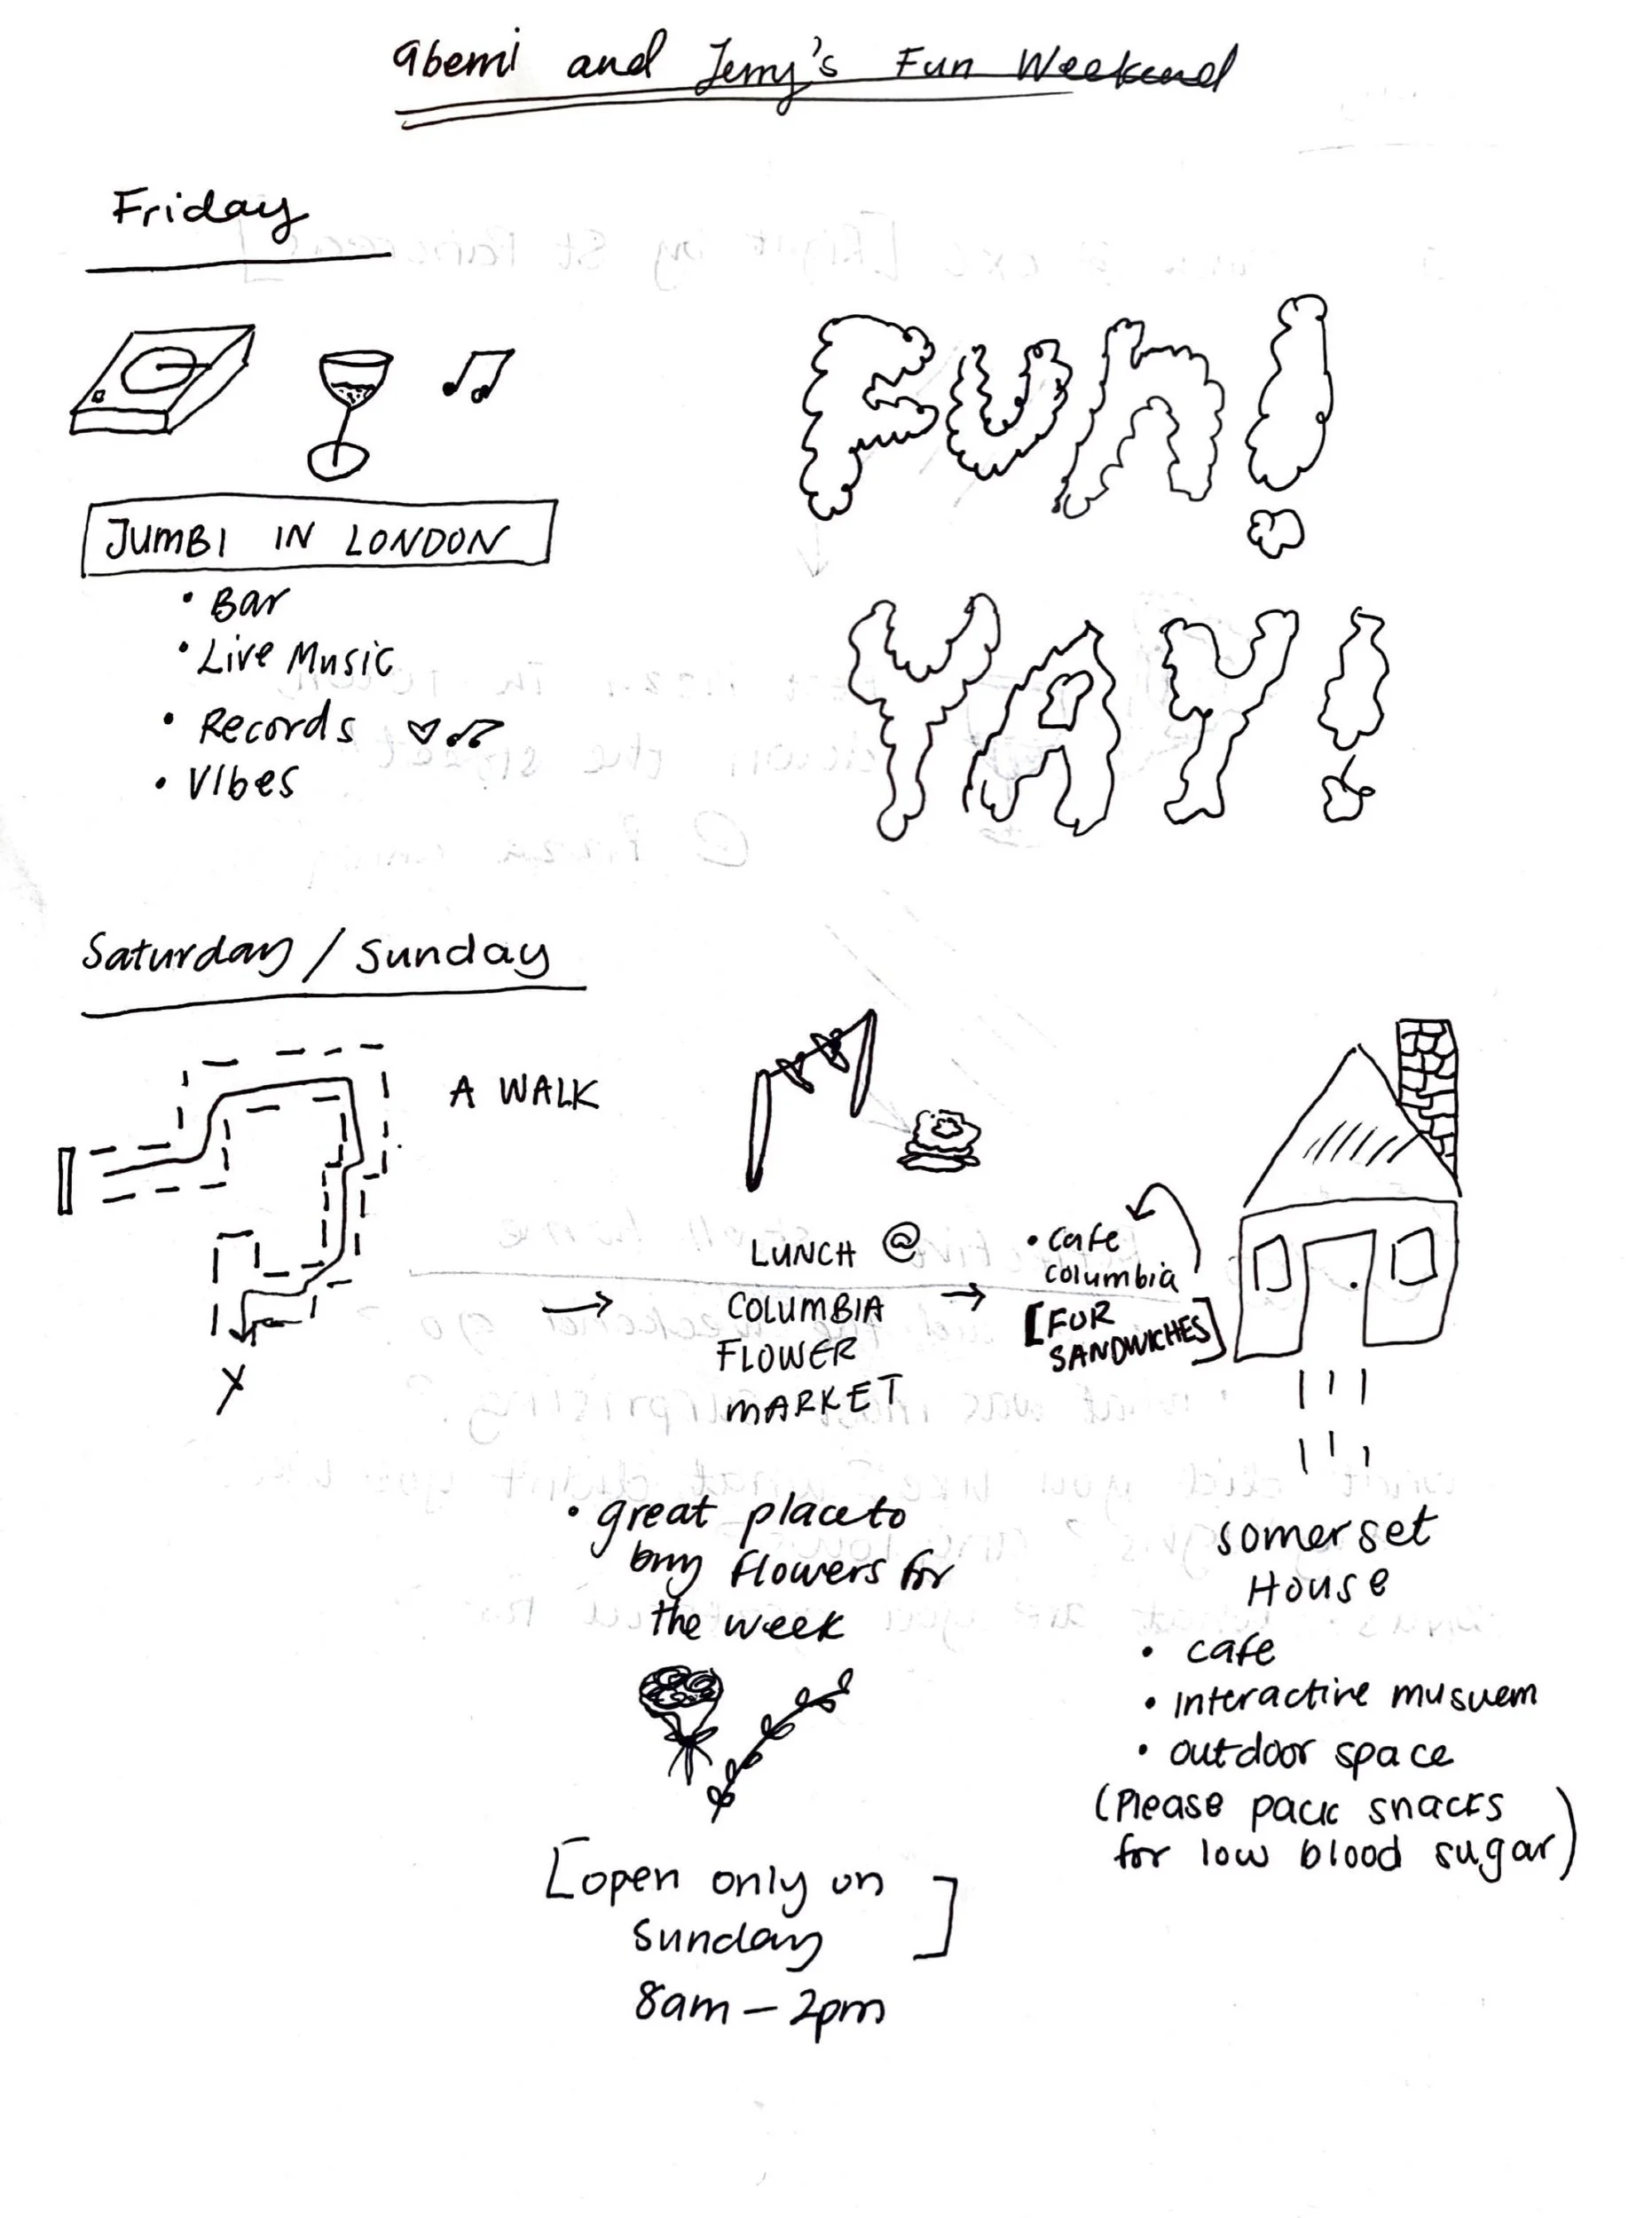 Gbemi and Jerry's Fun Weekend
Friday
JUMBI IN LONDON
• Bar
• Live Music
• Records
• Vibes
Fun!
YAY!
Saturday / Sunday
A WALK
X
LUNCH @
COLUMBIA
FLOWER
MARKET
• great place to
buy flowers for
the week
[open only on
Sunday]
8am – 2pm
• cafe
columbia
[FOR
SANDWICHES]
somerset
House
• cafe
• interactive musuem
• outdoor space
(Please pack snacks
for low blood sugar)